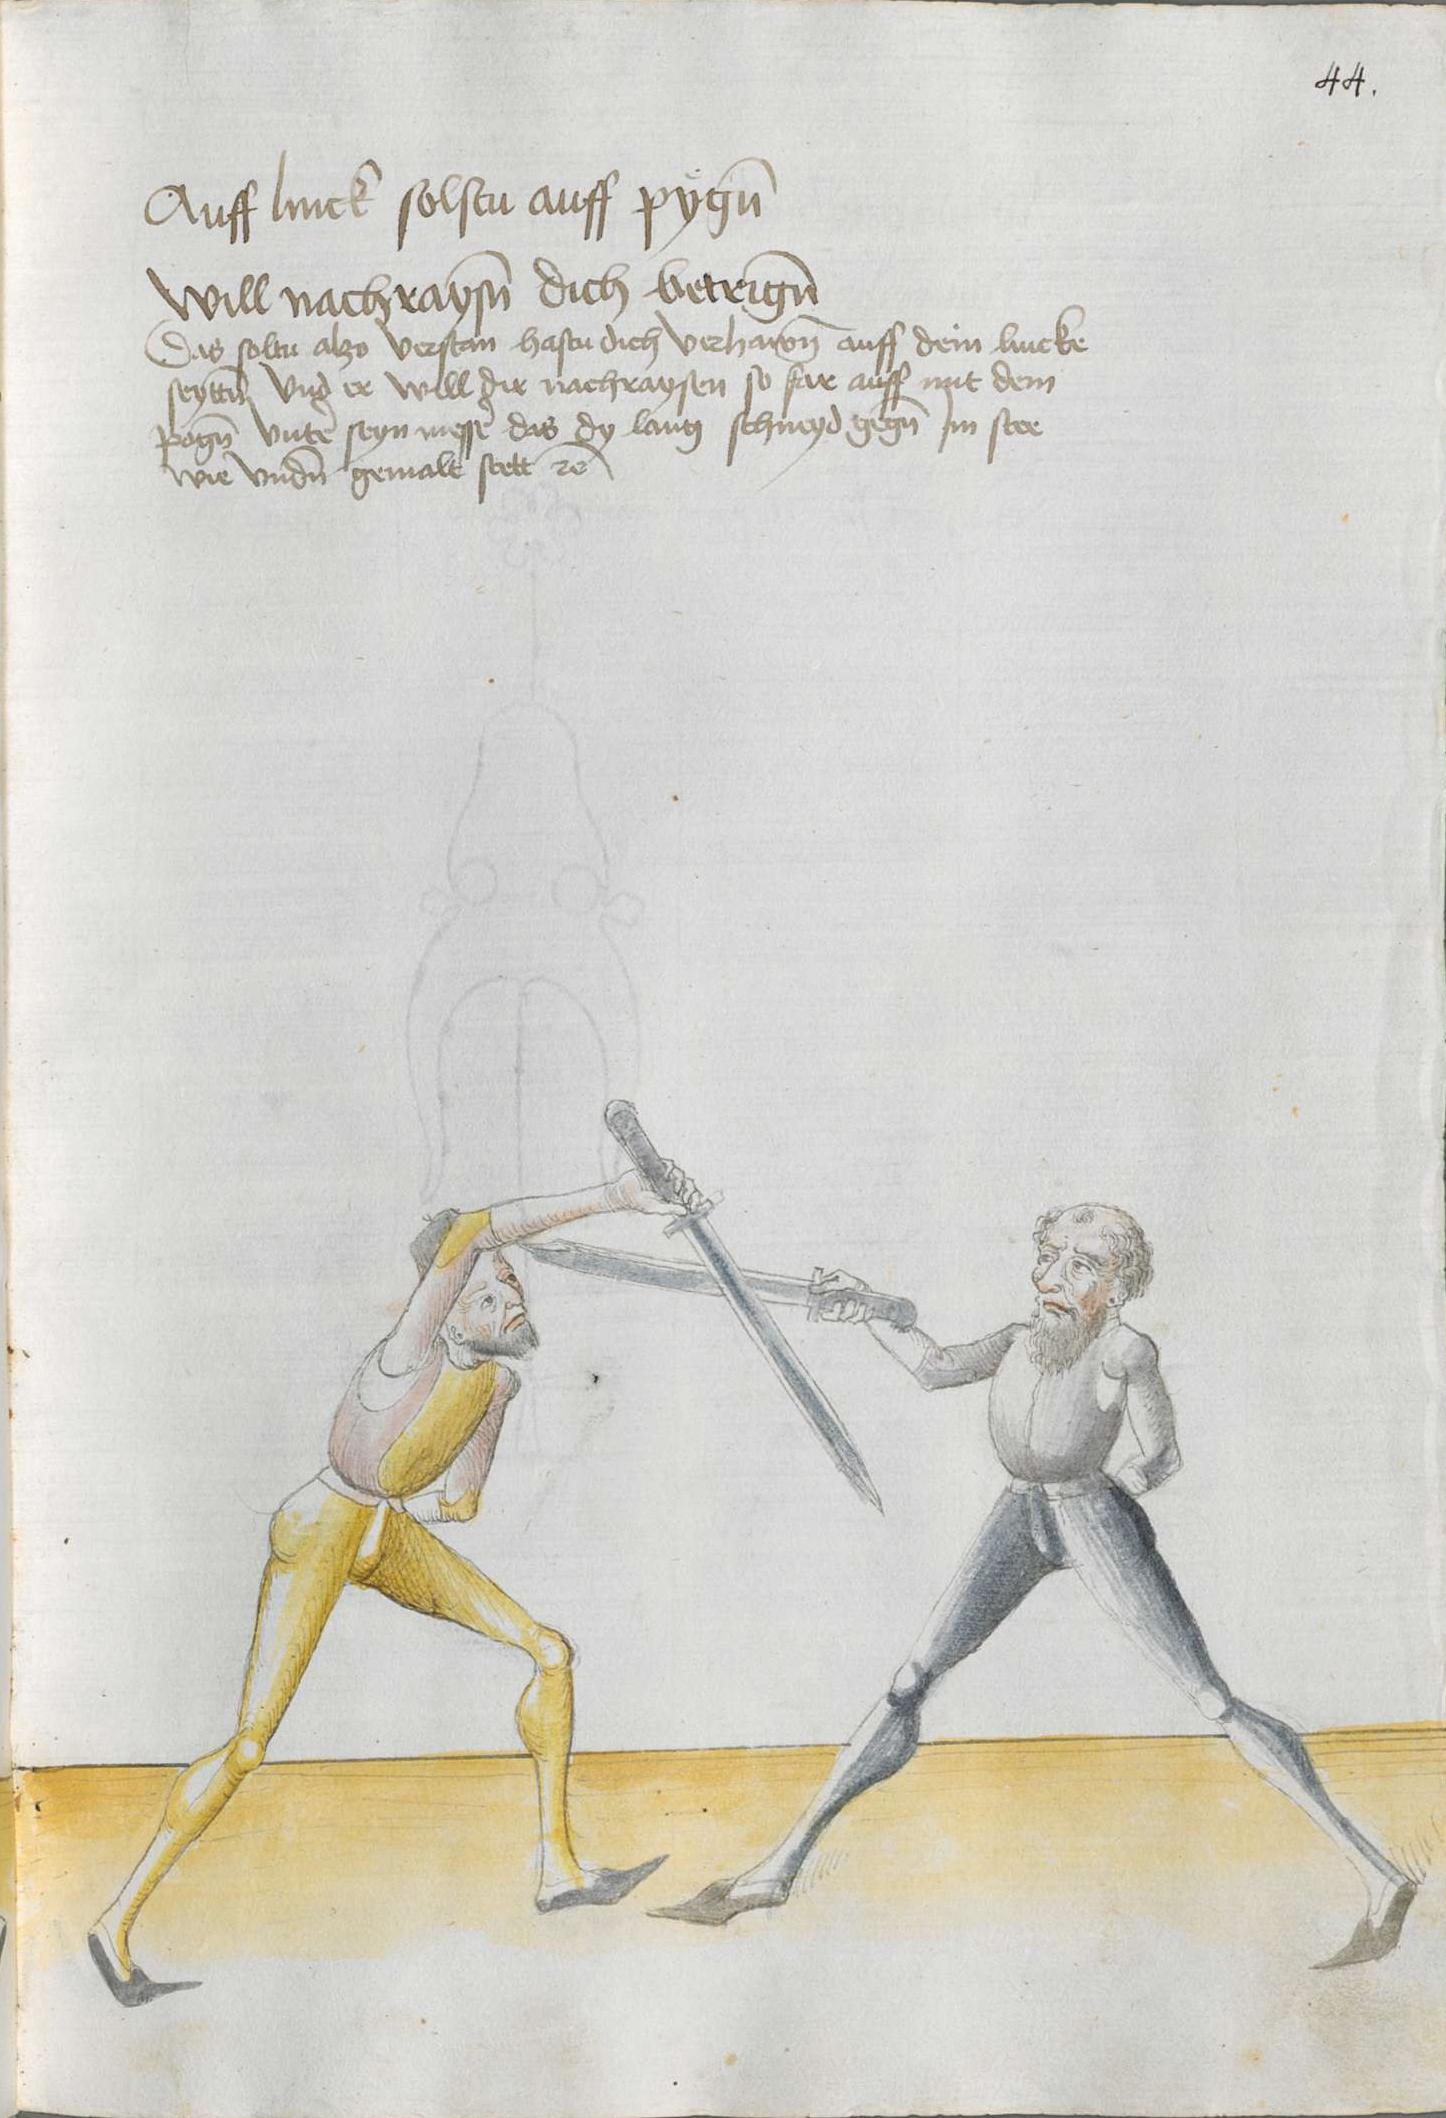 44.
Auff linck solstu auff pÿgn̄
Will nachraysn̄ dich betrign̄
Das soltu alzo verstan hastu dich verhawn̄ auff dein lincke
seyttn̄ Vnd er will dir nachraysen so far auff mit dem
pogn̄ vnter seyn messer das dy lang schneyd gegn̄ Im stee
wie vndn̄ gemalt stett